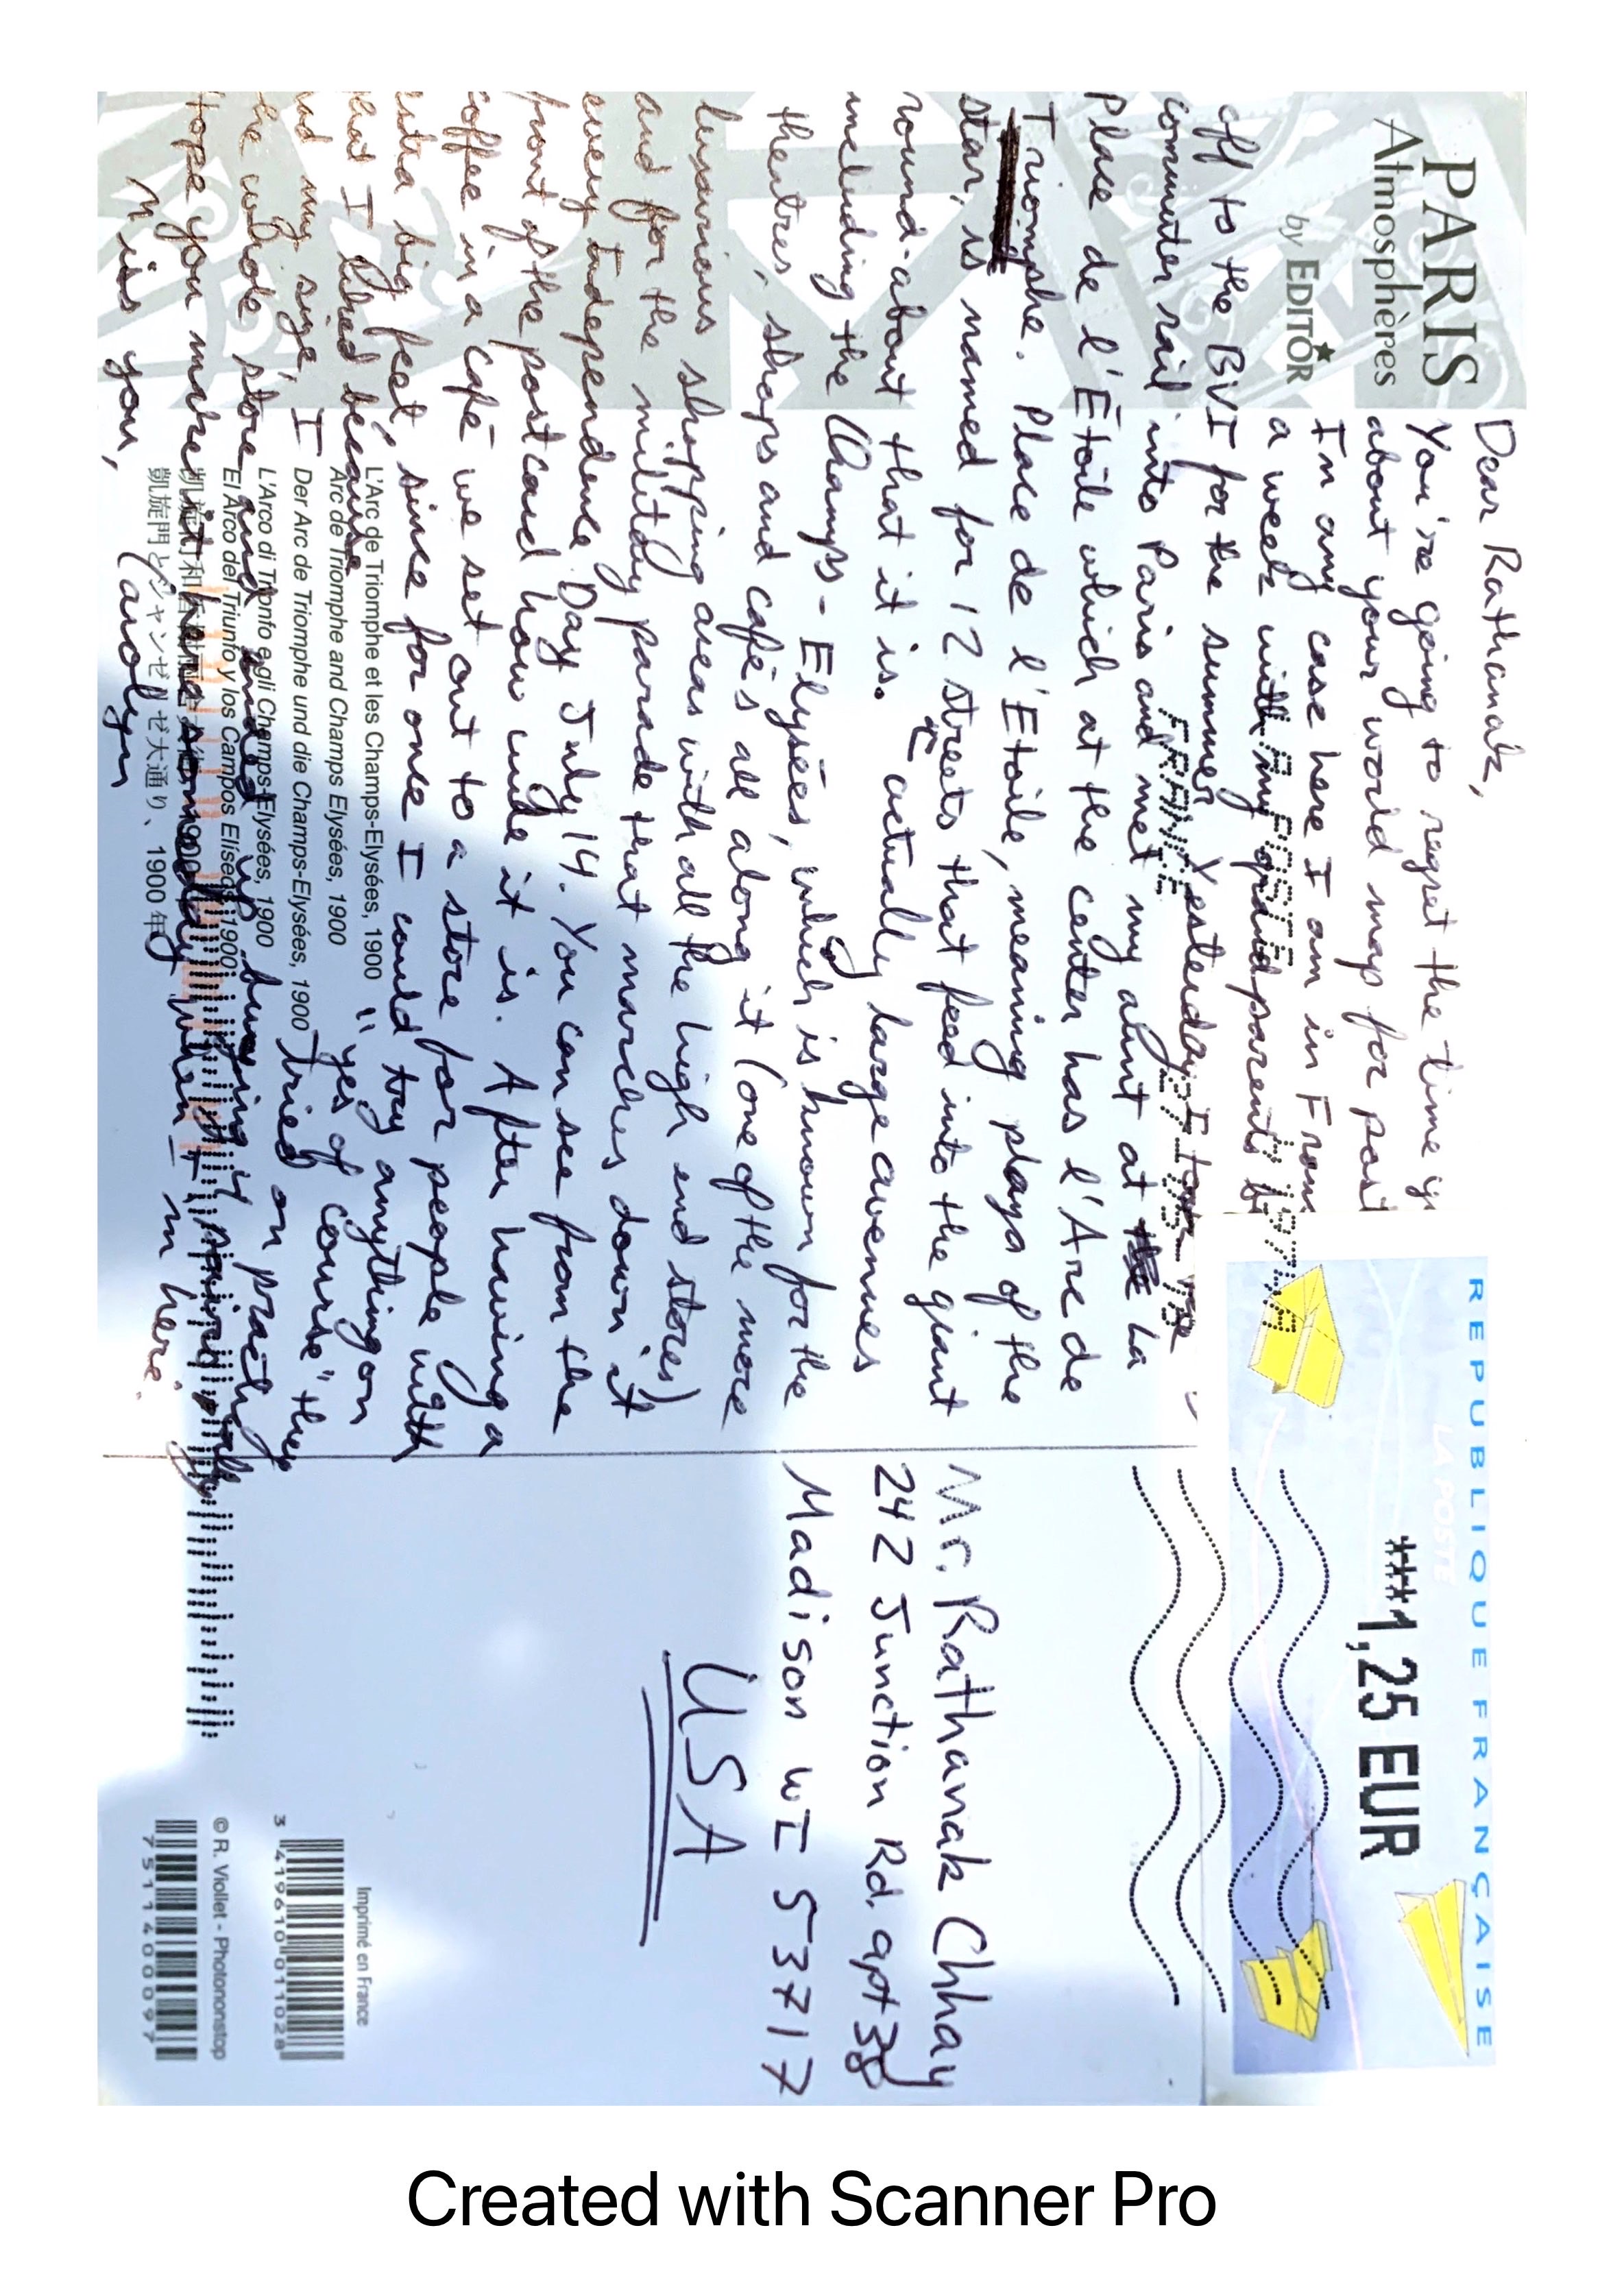 PARIS
Atmosphères
by EDITOR
Dear Rathanak,
You're going to regret the time
about your world map for post
In any case here I am in Fran
a week with my grandparents
off to the BVI for the summer Yesterday I took the
commuter rail into Paris and met my aunt at the La
Place de l'Étoile which at the center has l'Arc de
Triomphe. Place de l'Etoile, meaning plaza of the
star, is named for 12 streets that feed into the giant
round-about that it is. actually large avenues
including the Champs-Elysées, which is known for the
theatres, shops and cafés all along it (one of the more
luxurious shopping areas with all the high end stores)
and for the military parade that marches down it
every Independence Day July 14. You can see from the
front of the postcard how wide it is. After having a
coffee in a café we set out to a store for people with
extra big feet, since for one I could try anything on
that I liked because "yes of course" they
had my size, I tried on practically
the whole store and ended up buying 4 pairs!
Hope you make it here someday when I'm here.
Miss you,
Carolyn
L'Arc de Triomphe et les Champs-Elysées, 1900
Arc de Triomphe and Champs Elysées, 1900
Der Arc de Triomphe und die Champs-Elysées, 1900
L'Arco di Trionfo e gli Champs-Elysées, 1900
El Arco del Triunfo y los Campos Eliseos, 1900
凱旋門とシャンゼリゼ大通り、1900 年
REPUBLIQUE FRANÇAISE
LA POSTE
***1,25 EUR
LA POSTE
FRANCE
Mr. Rathanak Chhay
242 Junction Rd. apt 38
Madison WI 53717
USA
Imprimé en France
3 419610 011028
© R. Viollet - Photononstop
7511400097
Created with Scanner Pro